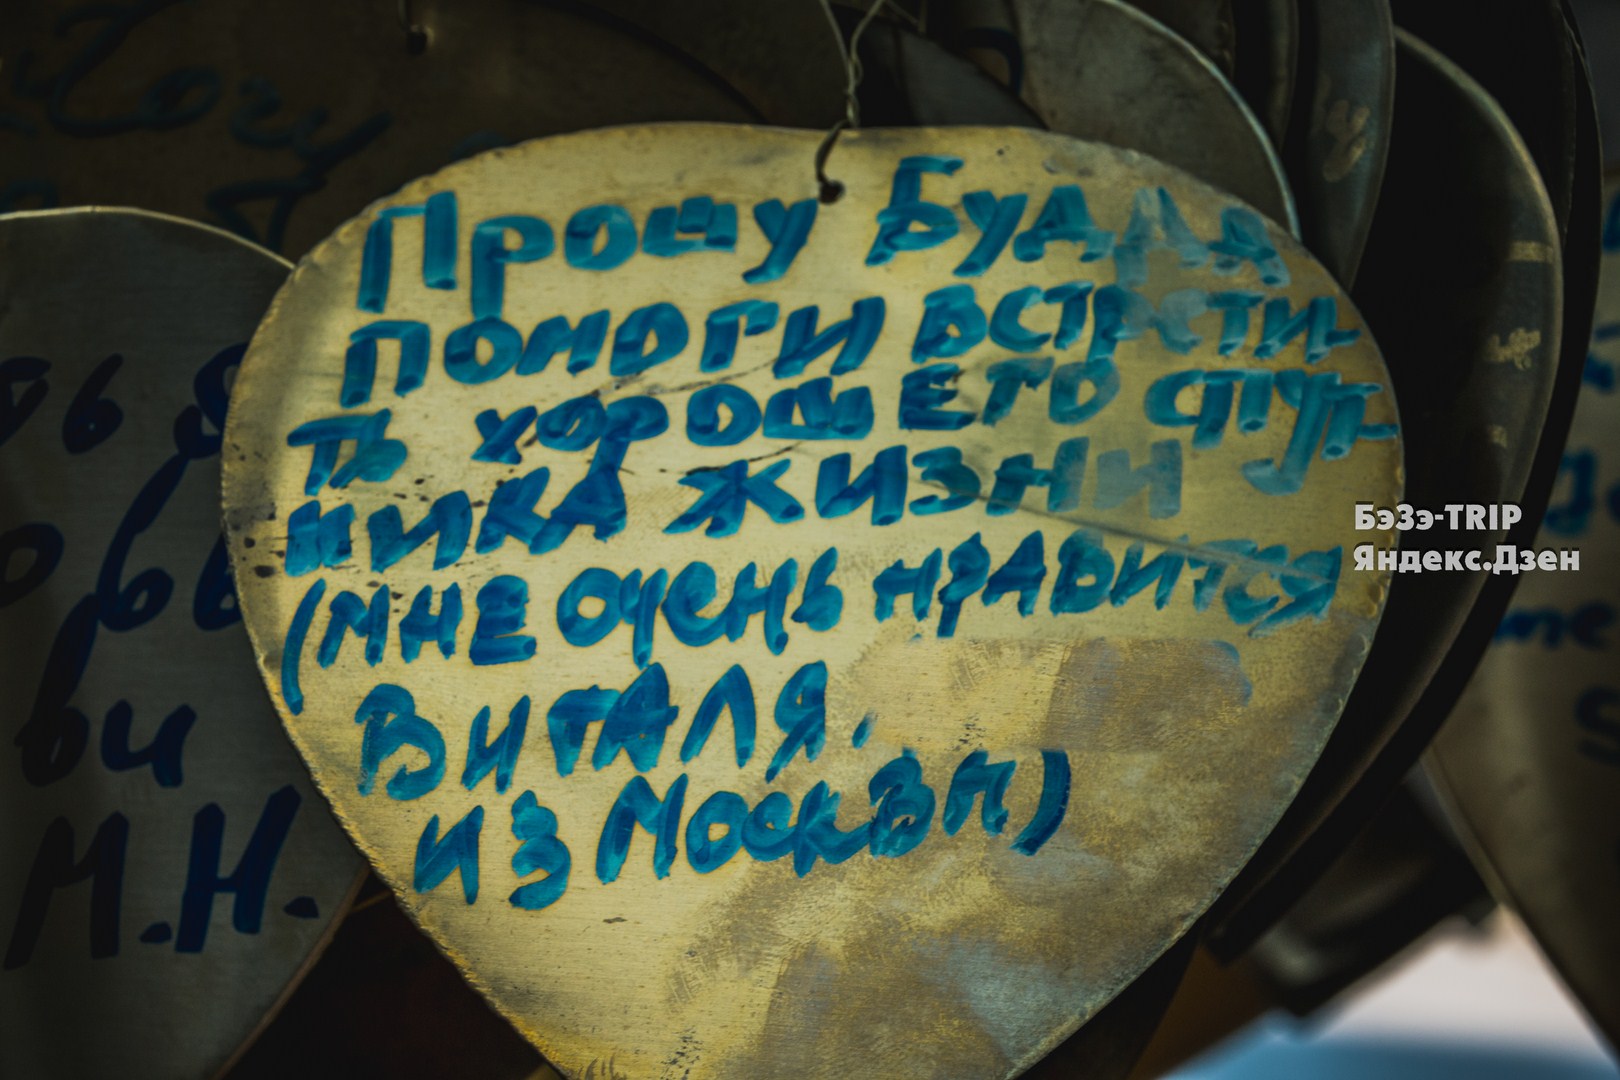 Прошу Будда
помоги встрети-
ть хорошего спут-
ника жизни
(мне очень нравится
Виталя.
из Москвы)
БэЗэ-TRIP
Яндекс.Дзен
ви
М.Н.